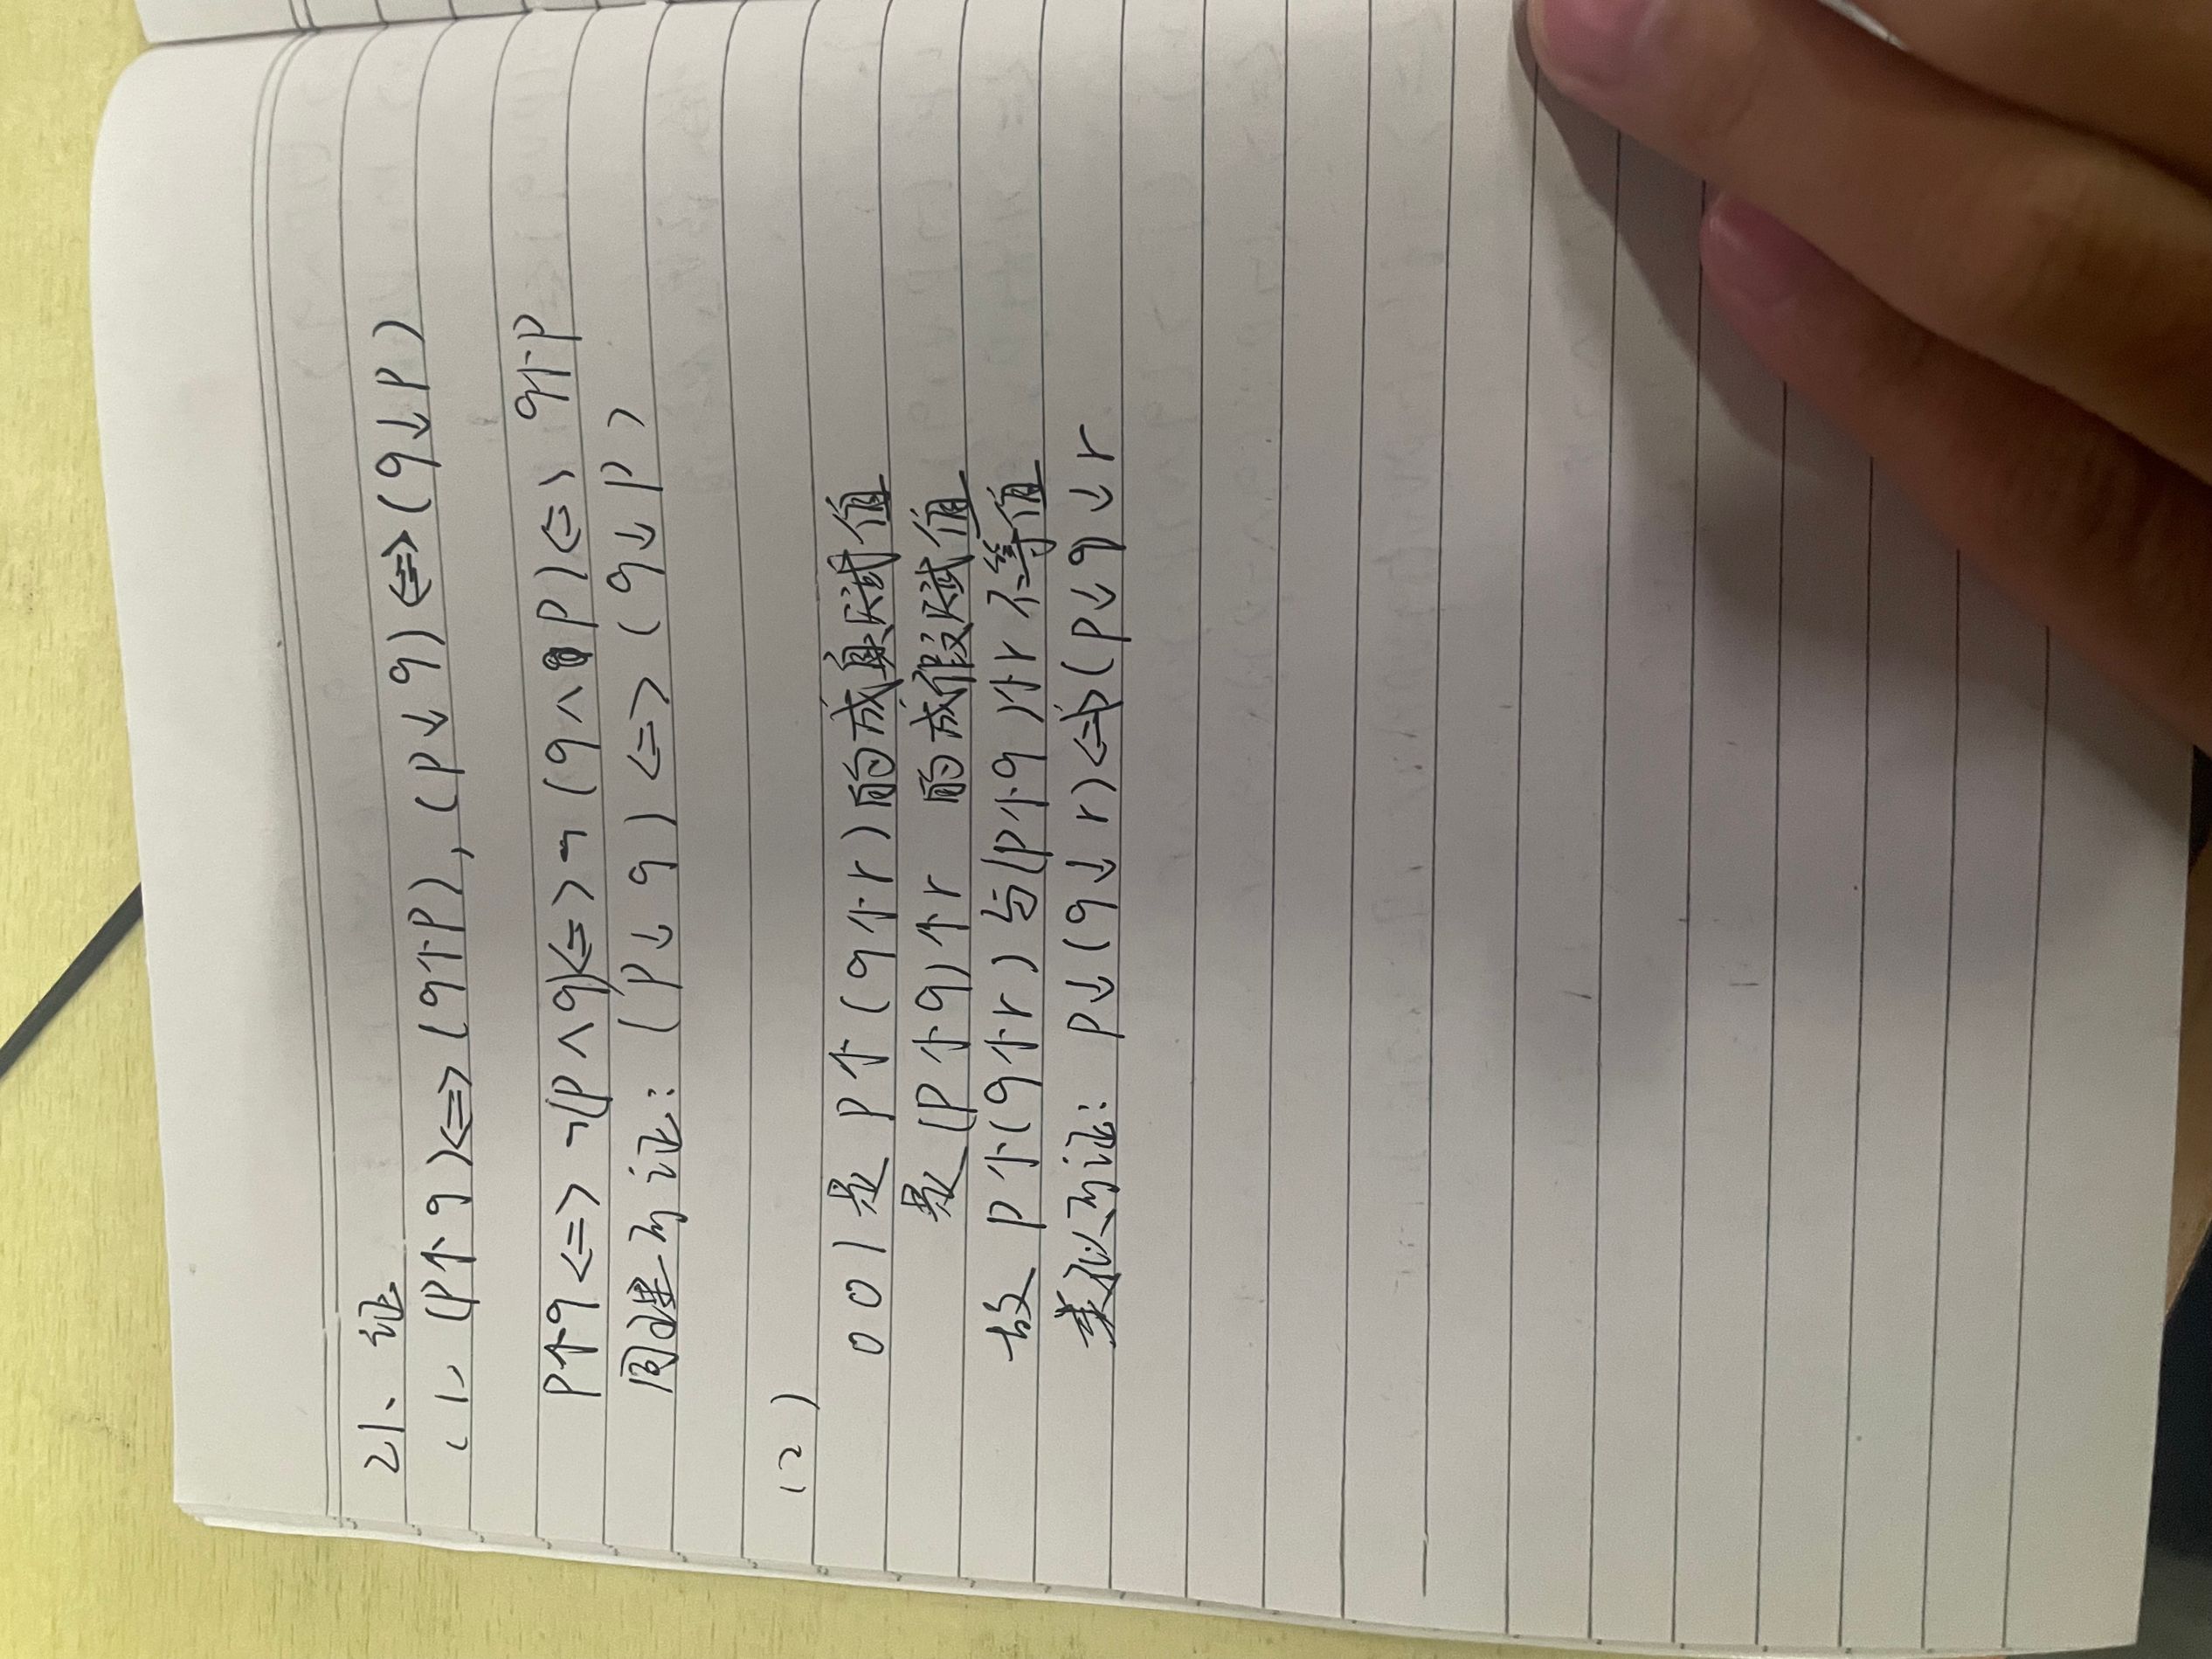 21、证
(1) (p↑q)<=>(q↑p),(p↓q)<=>(q↓p)
p↑q<=>¬(p∧q)<=>¬(q∧p)<=>q↑p
同理可证:(p↓q)<=>(q↓p)
(2)
001是p↑(q↑r)的成真赋值
是(p↑q)↑r 的成假赋值
故p↑(q↑r)与(p↑q)↑r不等值
类似可证:p↓(q↓r)<≠>(p↓q)↓r